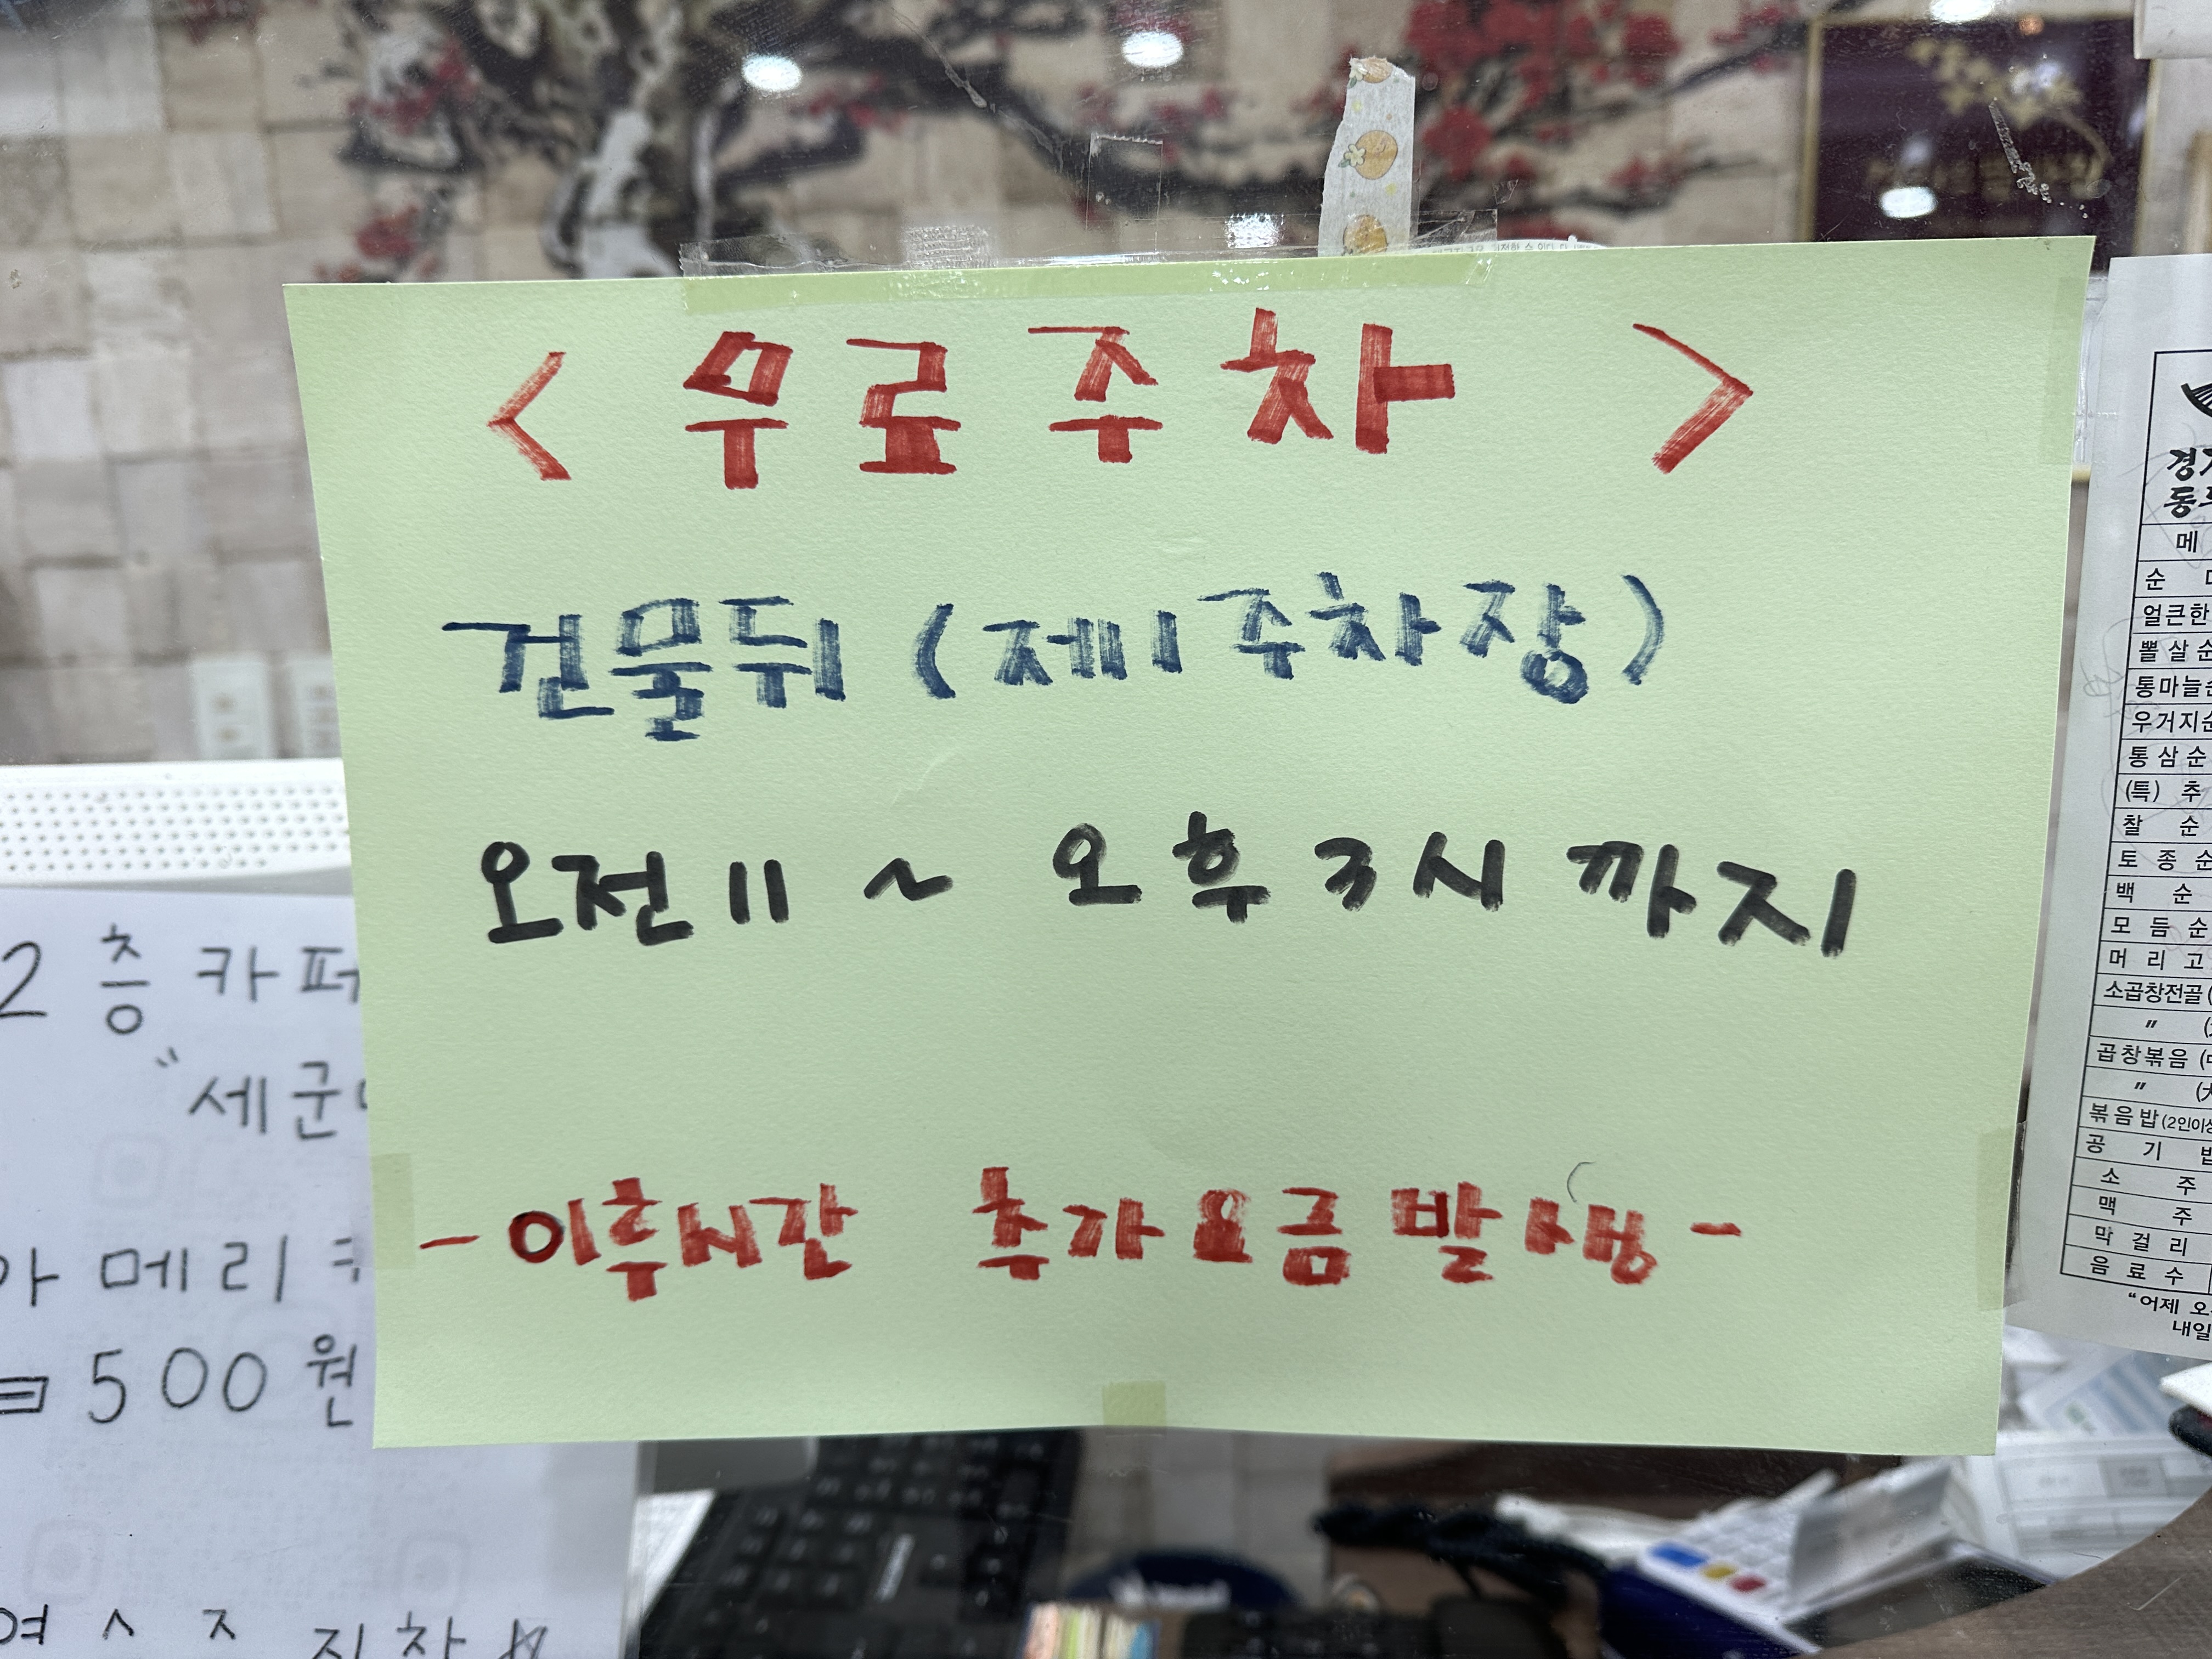 < 무료주차 >
건물뒤 (제1주차장)
오전 11 ~ 오후 3시 까지
- 이후시간 추가요금발생 -
2층 카페
"세군
아메리
500원
경기
동
메
순
얼큰한
뽈살순
통마늘순
우거지순
통삼순
(특) 추
찰순
토종순
백순
모듬순
머리고
소곱창전골 (
〃 (
곱창볶음 (
〃 (大
볶음밥 (2인이상
공기밥
소주
맥주
막걸리
음료수
"어제 오
내일